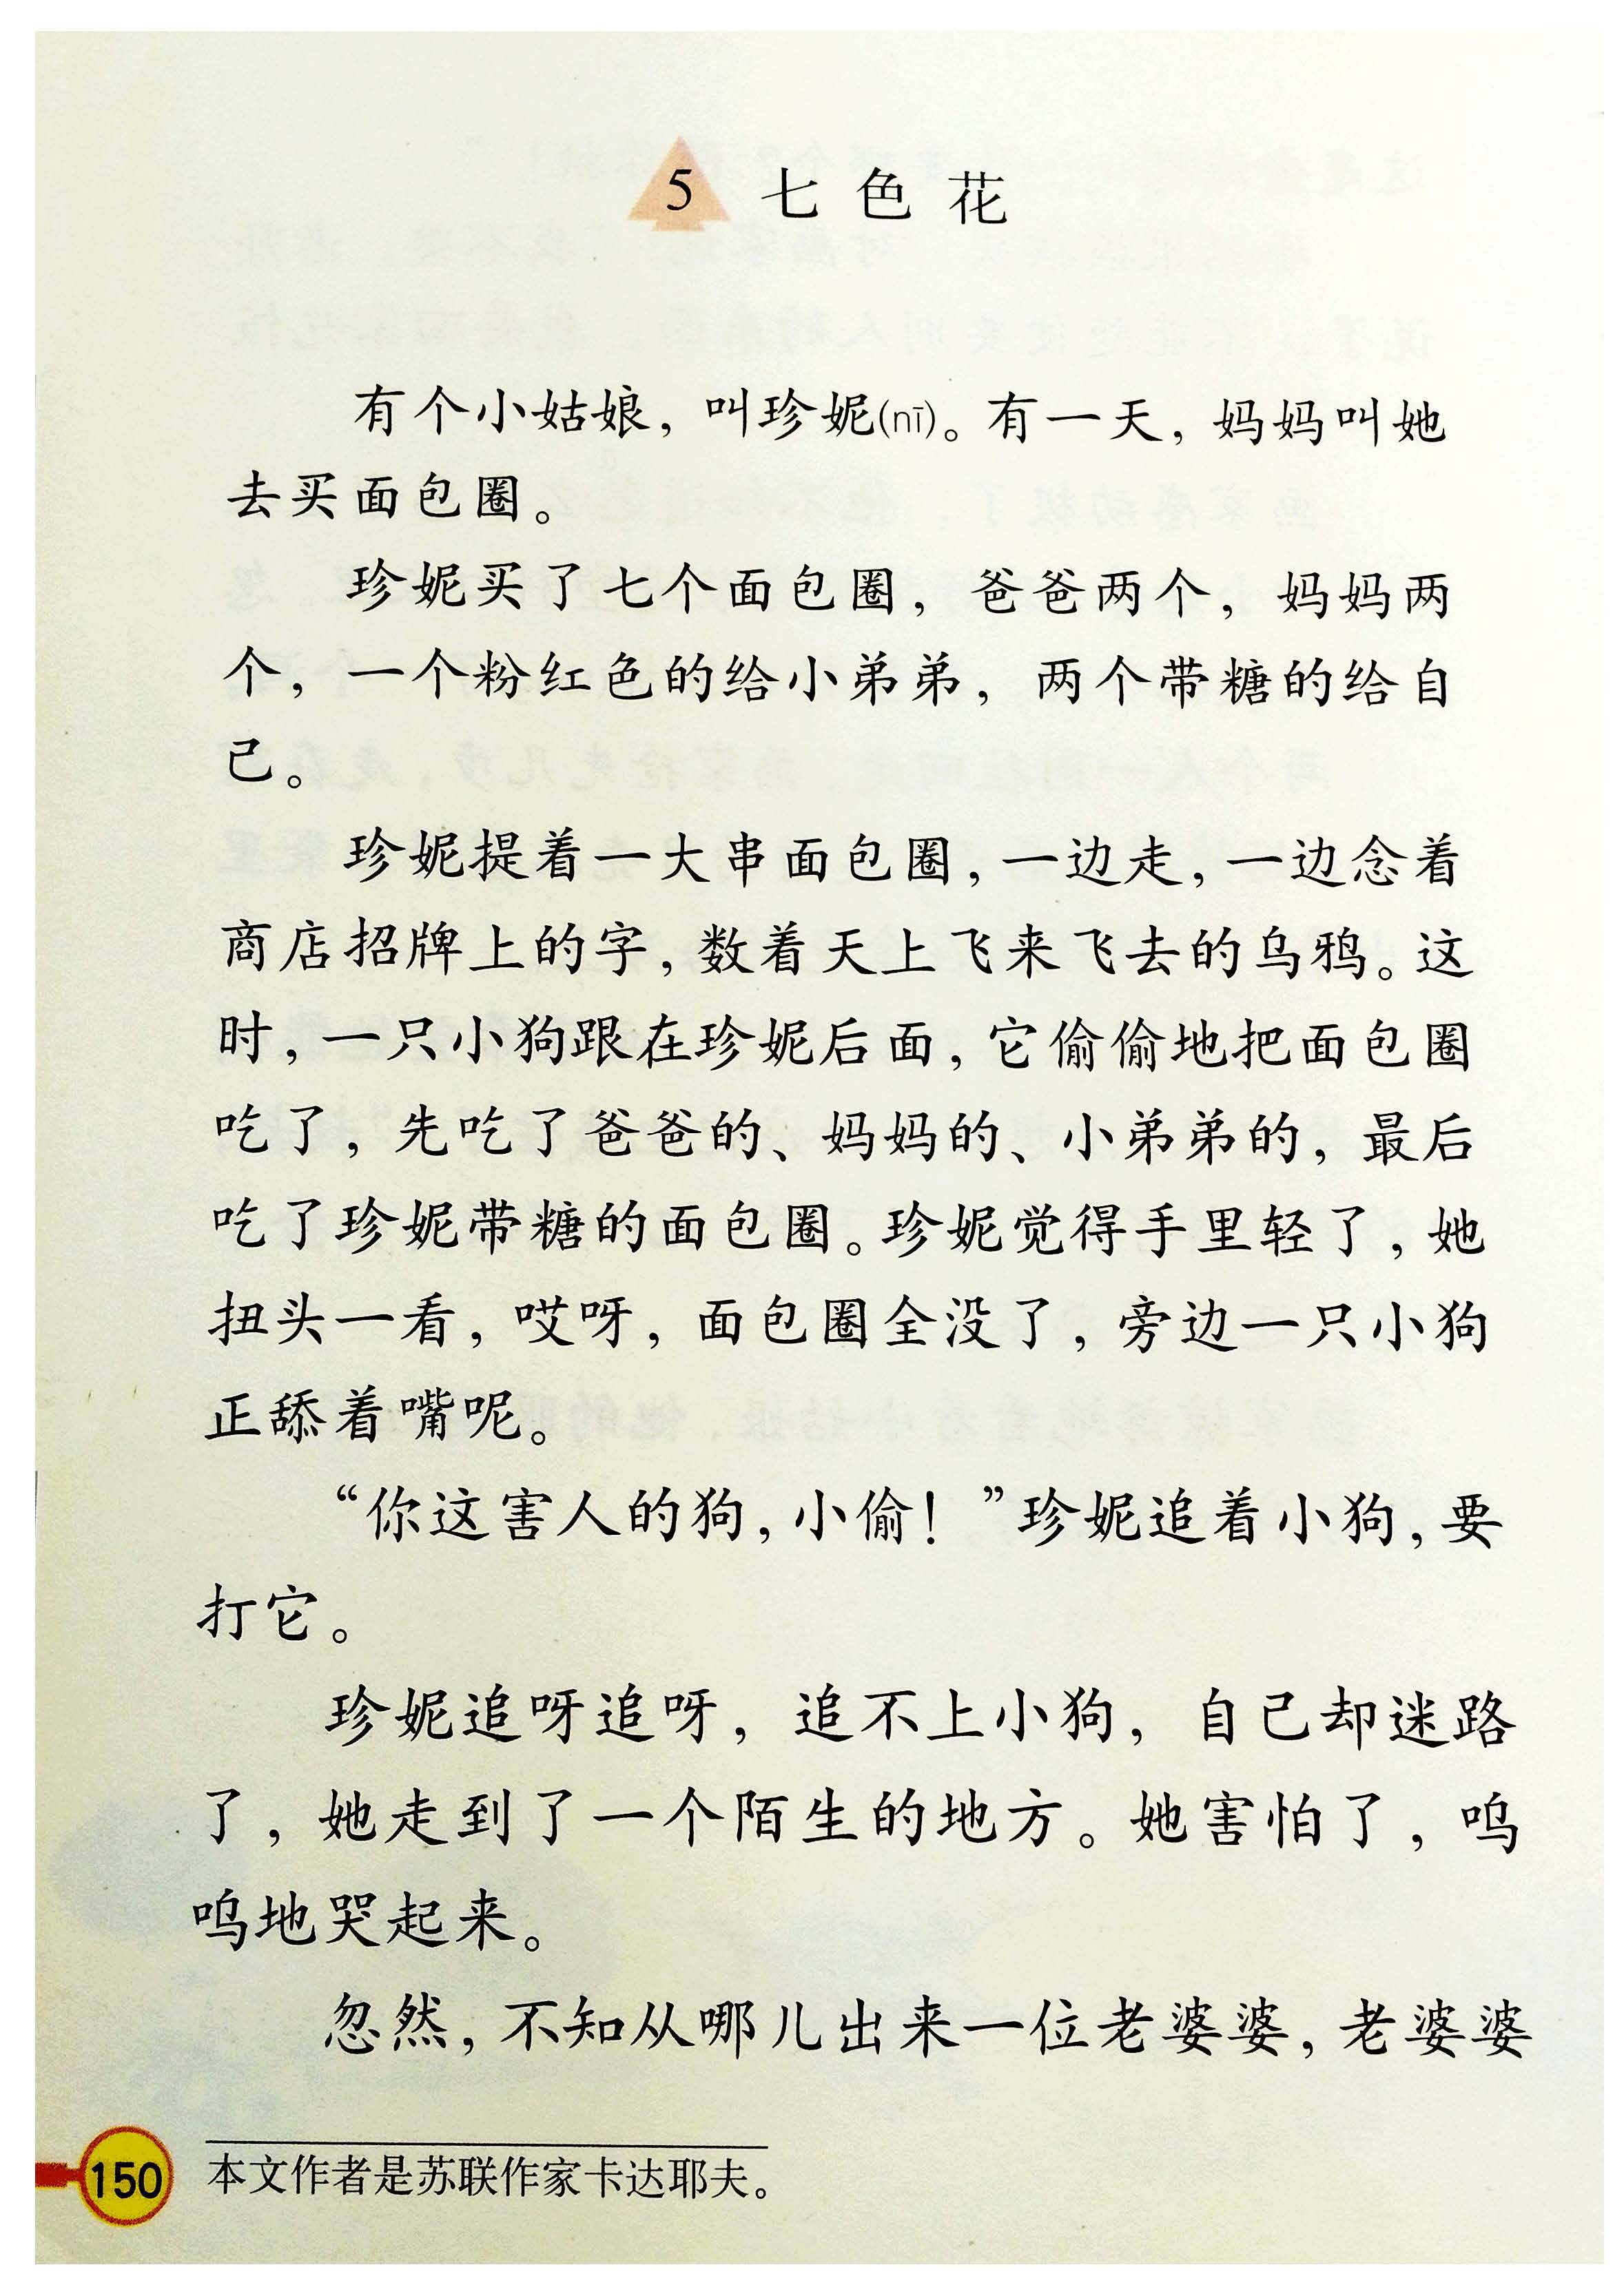 5 七色花
有个小姑娘，叫珍妮(nī)。有一天，妈妈叫她
去买面包圈。
珍妮买了七个面包圈，爸爸两个，妈妈两
个，一个粉红色的给小弟弟，两个带糖的给自
己。
珍妮提着一大串面包圈，一边走，一边念着
商店招牌上的字，数着天上飞来飞去的乌鸦。这
时，一只小狗跟在珍妮后面，它偷偷地把面包圈
吃了，先吃了爸爸的、妈妈的、小弟弟的，最后
吃了珍妮带糖的面包圈。珍妮觉得手里轻了，她
扭头一看，哎呀，面包圈全没了，旁边一只小狗
正舔着嘴呢。
“你这害人的狗，小偷！”珍妮追着小狗，要
打它。
珍妮追呀追呀，追不上小狗，自己却迷路
了，她走到了一个陌生的地方。她害怕了，呜
呜地哭起来。
忽然，不知从哪儿出来一位老婆婆，老婆婆
本文作者是苏联作家卡达耶夫。
150